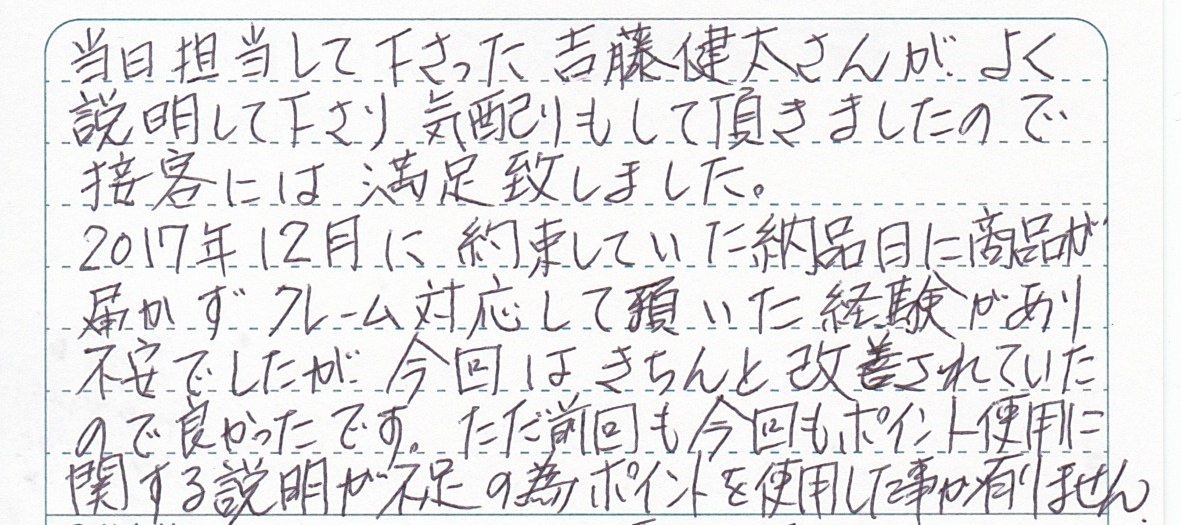 当日担当して下さった吉藤健太さんが、よく
説明して下さり気配りもして頂きましたので
接客には満足致しました。
2017年12月に約束していた納品日に商品が
届かずクレーム対応して頂いた経験があり
不安でしたが今回はきちんと改善されていた
ので良かったです。ただ前回も今回もポイント使用に
関する説明が不足の為ポイントを使用した事が有りません。